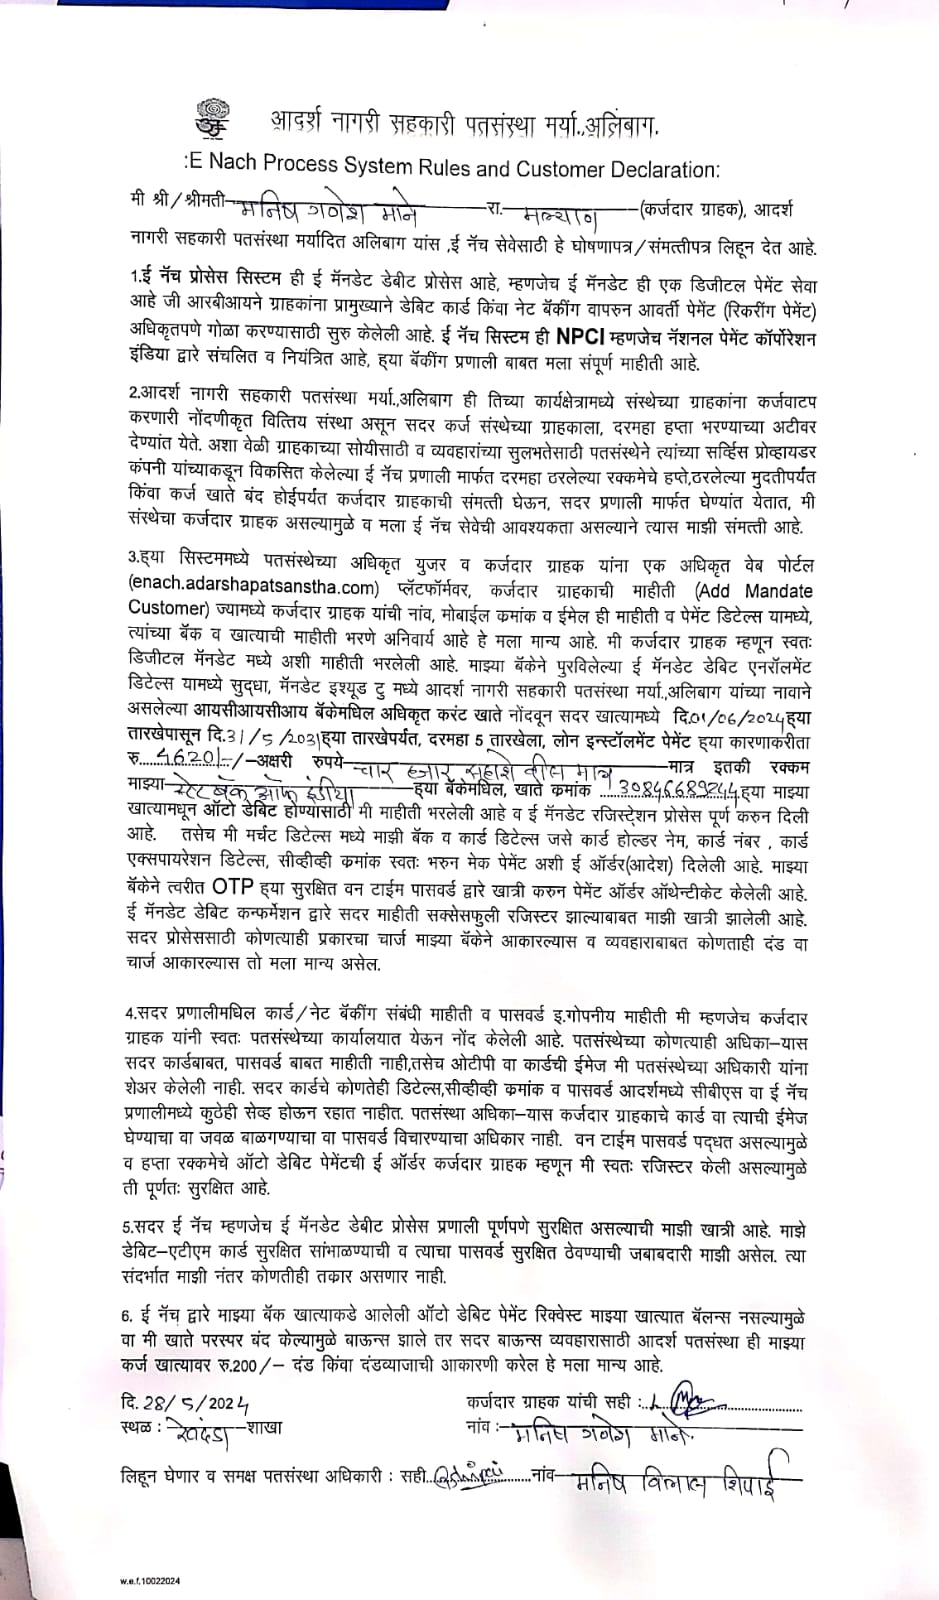 आदर्श नागरी सहकारी पतसंस्था मर्या.,अलिबाग.
:E Nach Process System Rules and Customer Declaration:
मी श्री/श्रीमती मनिष गणेश माने रा. मल्याण (कर्जदार ग्राहक), आदर्श
नागरी सहकारी पतसंस्था मर्यादित अलिबाग यांस ,ई नॅच सेवेसाठी हे घोषणापत्र/संमत्तीपत्र लिहून देत आहे.
1.ई नॅच प्रोसेस सिस्टिम ही ई मॅनडेट डेबीट प्रोसेस आहे, म्हणजेच ई मॅनडेट ही एक डिजीटल पेमेंट सेवा
आहे जी आरबीआयने ग्राहकांना प्रामुख्याने डेबिट कार्ड किंवा नेट बॅकींग वापरुन आवर्ती पेमेंट (रिकरींग पेमेंट)
अधिकृतपणे गोळा करण्यासाठी सुरु केलेली आहे. ई नॅच सिस्टिम ही NPCI म्हणजेच नॅशनल पेमेंट कॉर्पोरेशन
इंडिया द्वारे संचलित व नियंत्रित आहे, हया बॅकींग प्रणाली बाबत मला संपूर्ण माहीती आहे.
2.आदर्श नागरी सहकारी पतसंस्था मर्या.,अलिबाग ही तिच्या कार्यक्षेत्रामध्ये संस्थेच्या ग्राहकांना कर्जवाटप
करणारी नोंदणीकृत वित्तिय संस्था असून सदर कर्ज संस्थेच्या ग्राहकाला, दरमहा हप्ता भरण्याच्या अटीवर
देण्यांत येते. अशा वेळी ग्राहकाच्या सोयीसाठी व व्यवहारांच्या सुलभतेसाठी पतसंस्थेने त्यांच्या सर्व्हिस प्रोव्हायडर
कंपनी यांच्याकडून विकसित केलेल्या ई नॅच प्रणाली मार्फत दरमहा ठरलेल्या रक्कमेचे हप्ते,ठरलेल्या मुदतीपर्यंत
किंवा कर्ज खाते बंद होईपर्यंत कर्जदार ग्राहकाची संमत्ती घेऊन, सदर प्रणाली मार्फत घेण्यांत येतात, मी
संस्थेचा कर्जदार ग्राहक असल्यामुळे व मला ई नॅच सेवेची आवश्यकता असल्याने त्यास माझी संमत्ती आहे.
3.हया सिस्टममध्ये पतसंस्थेच्या अधिकृत युजर व कर्जदार ग्राहक यांना एक अधिकृत वेब पोर्टल
(enach.adarshapatsanstha.com) प्लॅटफॉर्मवर, कर्जदार ग्राहकाची माहीती (Add Mandate
Customer) ज्यामध्ये कर्जदार ग्राहक यांची नांव, मोबाईल क्रमांक व ईमेल ही माहीती व पेमेंट डिटेल्स यामध्ये,
त्यांच्या बॅक व खात्याची माहीती भरणे अनिवार्य आहे हे मला मान्य आहे. मी कर्जदार ग्राहक म्हणून स्वतः
डिजीटल मॅनडेट मध्ये अशी माहीती भरलेली आहे. माझ्या बॅकेने पुरविलेल्या ई मॅनडेट डेबिट एनरॉलमेंट
डिटेल्स यामध्ये सुद्धा, मॅनडेट इश्यूड टु मध्ये आदर्श नागरी सहकारी पतसंस्था मर्या.,अलिबाग यांच्या नावाने
असलेल्या आयसीआयसीआय बॅकेमधिल अधिकृत करंट खाते नोंदवून सदर खात्यामध्ये दि.01/06/2024हया
तारखेपासून दि.31/5/2031हया तारखेपर्यंत, दरमहा 5 तारखेला, लोन इन्स्टॉलमेंट पेमेंट हया कारणाकरीता
रु.....4620/-/-अक्षरी रुपये चार हजार सहाशे वीस मात्र मात्र इतकी रक्कम
माझ्या स्टेट बँक ऑफ इंडीया हया बॅकेमधिल, खाते क्रमांक ...30846689244हया माझ्या
खात्यामधून ऑटो डेबिट होण्यासाठी मी माहीती भरलेली आहे व ई मॅनडेट रजिस्ट्रेशन प्रोसेस पूर्ण करुन दिली
आहे. तसेच मी मर्चंट डिटेल्स मध्ये माझी बॅक व कार्ड डिटेल्स जसे कार्ड होल्डर नेम, कार्ड नंबर , कार्ड
एक्सपायरेशन डिटेल्स, सीव्हीव्ही क्रमांक स्वतः भरुन मेक पेमेंट अशी ई ऑर्डर(आदेश) दिलेली आहे. माझ्या
बॅकेने त्वरीत OTP हया सुरक्षित वन टाईम पासवर्ड द्वारे खात्री करुन पेमेंट ऑर्डर ऑथेन्टीकेट केलेली आहे.
ई मॅनडेट डेबिट कन्फर्मेशन द्वारे सदर माहीती सक्सेसफुली रजिस्टर झाल्याबाबत माझी खात्री झालेली आहे.
सदर प्रोसेससाठी कोणत्याही प्रकारचा चार्ज माझ्या बॅकेने आकारल्यास व व्यवहाराबाबत कोणताही दंड वा
चार्ज आकारल्यास तो मला मान्य असेल.
4.सदर प्रणालीमधिल कार्ड/नेट बॅकींग संबंधी माहीती व पासवर्ड इ.गोपनीय माहीती मी म्हणजेच कर्जदार
ग्राहक यांनी स्वतः पतसंस्थेच्या कार्यालयात येऊन नोंद केलेली आहे. पतसंस्थेच्या कोणत्याही अधिका–यास
सदर कार्डबाबत, पासवर्ड बाबत माहीती नाही,तसेच ओटीपी वा कार्डची ईमेज मी पतसंस्थेच्या अधिकारी यांना
शेअर केलेली नाही. सदर कार्डचे कोणतेही डिटेल्स,सीव्हीव्ही क्रमांक व पासवर्ड आदर्शमध्ये सीबीएस वा ई नॅच
प्रणालीमध्ये कुठेही सेव्ह होऊन रहात नाहीत. पतसंस्था अधिका–यास कर्जदार ग्राहकाचे कार्ड वा त्याची ईमेज
घेण्याचा वा जवळ बाळगण्याचा वा पासवर्ड विचारण्याचा अधिकार नाही. वन टाईम पासवर्ड पद्धत असल्यामुळे
व हप्ता रक्कमेचे ऑटो डेबिट पेमेंटची ई ऑर्डर कर्जदार ग्राहक म्हणून मी स्वतः रजिस्टर केली असल्यामुळे
ती पूर्णतः सुरक्षित आहे.
5.सदर ई नॅच म्हणजेच ई मॅनडेट डेबीट प्रोसेस प्रणाली पूर्णपणे सुरक्षित असल्याची माझी खात्री आहे. माझे
डेबिट–एटीएम कार्ड सुरक्षित सांभाळण्याची व त्याचा पासवर्ड सुरक्षित ठेवण्याची जबाबदारी माझी असेल. त्या
संदर्भात माझी नंतर कोणतीही तकार असणार नाही.
6. ई नॅच द्वारे माझ्या बॅक खात्याकडे आलेली ऑटो डेबिट पेमेंट रिक्वेस्ट माझ्या खात्यात बॅलन्स नसल्यामुळे
वा मी खाते परस्पर बंद केल्यामुळे बाऊन्स झाले तर सदर बाऊन्स व्यवहारासाठी आदर्श पतसंस्था ही माझ्या
कर्ज खात्यावर रु.200/– दंड किंवा दंडव्याजाची आकारणी करेल हे मला मान्य आहे.
दि. 28/5/2024 कर्जदार ग्राहक यांची सही :
स्थळ : रेवदंडा शाखा नांव :- मनिष गणेश माने.
लिहून घेणार व समक्ष पतसंस्था अधिकारी : सही नांव मनिष विलास शिपाई
w.e.f.10022024